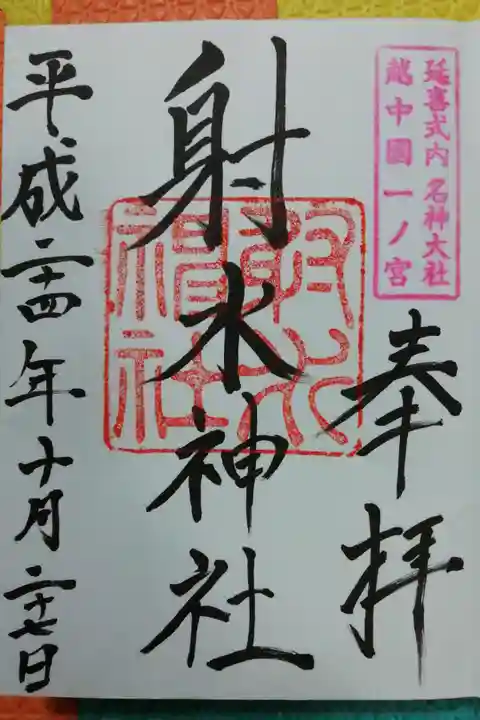 延喜式内 名神大社
越中國一ノ宮
奉拝
射水神社
射水神社
平成二十四年十月二十七日